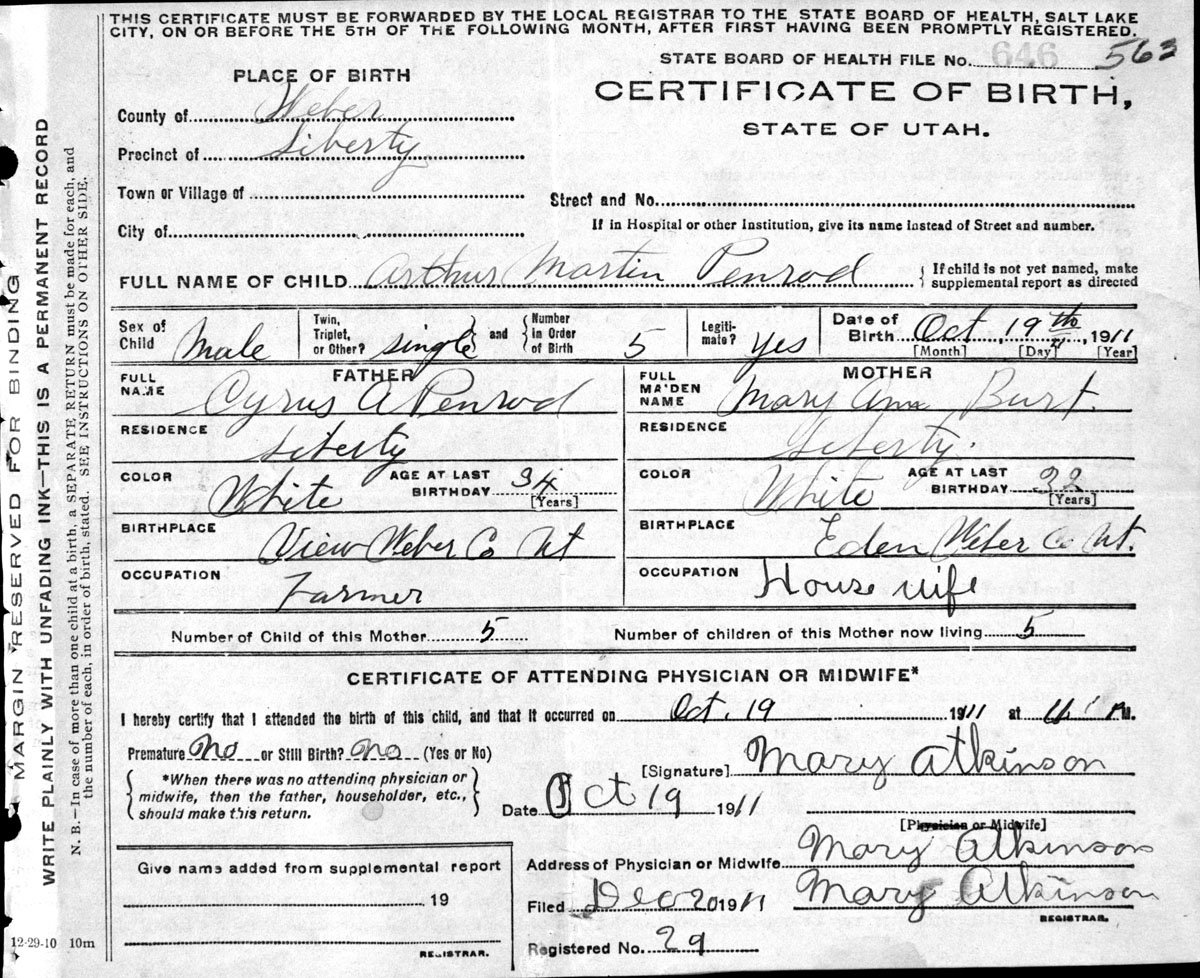 THIS CERTIFICATE MUST BE FORWARDED BY THE LOCAL REGISTRAR TO THE STATE BOARD OF HEALTH, SALT LAKE
CITY, ON OR BEFORE THE 5TH OF THE FOLLOWING MONTH, AFTER FIRST HAVING BEEN PROMPTLY REGISTERED.
STATE BOARD OF HEALTH FILE No. 646 563
PLACE OF BIRTH
CERTIFICATE OF BIRTH,
STATE OF UTAH.
County of Weber
Precinct of Liberty
Town or Village of
Street and No.
City of
If in Hospital or other Institution, give its name instead of Street and number.
FULL NAME OF CHILD Arthur Martin Penrod
If child is not yet named, make
supplemental report as directed
Sex of
Child Male
Twin,
Triplet,
or Other? single
and
Number
in Order
of Birth 5
Legiti-
mate? yes
Date of
Birth Oct, 19th, 1911
[Month] [Day] [Year]
FATHER
FULL
NAME Cyrus A Penrod
RESIDENCE
Liberty
COLOR White
AGE AT LAST
BIRTHDAY 34
[Years]
BIRTHPLACE
View Weber Co Ut
OCCUPATION
Farmer
MOTHER
FULL
MAIDEN
NAME Mary Ann Burt.
RESIDENCE
Liberty.
COLOR White
AGE AT LAST
BIRTHDAY 32
[Years]
BIRTHPLACE
Eden Weber Co Ut.
OCCUPATION House wife
Number of Child of this Mother 5
Number of children of this Mother now living 5
CERTIFICATE OF ATTENDING PHYSICIAN OR MIDWIFE*
I hereby certify that I attended the birth of this child, and that it occurred on Oct. 19 1911 at M.
Premature No or Still Birth? no (Yes or No)
*When there was no attending physician or
midwife, then the father, householder, etc.,
should make this return.
[Signature] Mary Atkinson
Date Oct 19 1911
[Physician or Midwife]
Address of Physician or Midwife Mary Atkinson
Filed Dec 20 1911 Mary Atkinson
REGISTRAR.
Registered No. 29
Give name added from supplemental report
19
REGISTRAR.
12-29-10 10m
MARGIN RESERVED FOR BINDING
WRITE PLAINLY WITH UNFADING INK—THIS IS A PERMANENT RECORD
N. B.—In case of more than one child at a birth, a SEPARATE RETURN must be made for each, and
the number of each, in order of birth, stated. SEE INSTRUCTIONS ON OTHER SIDE.